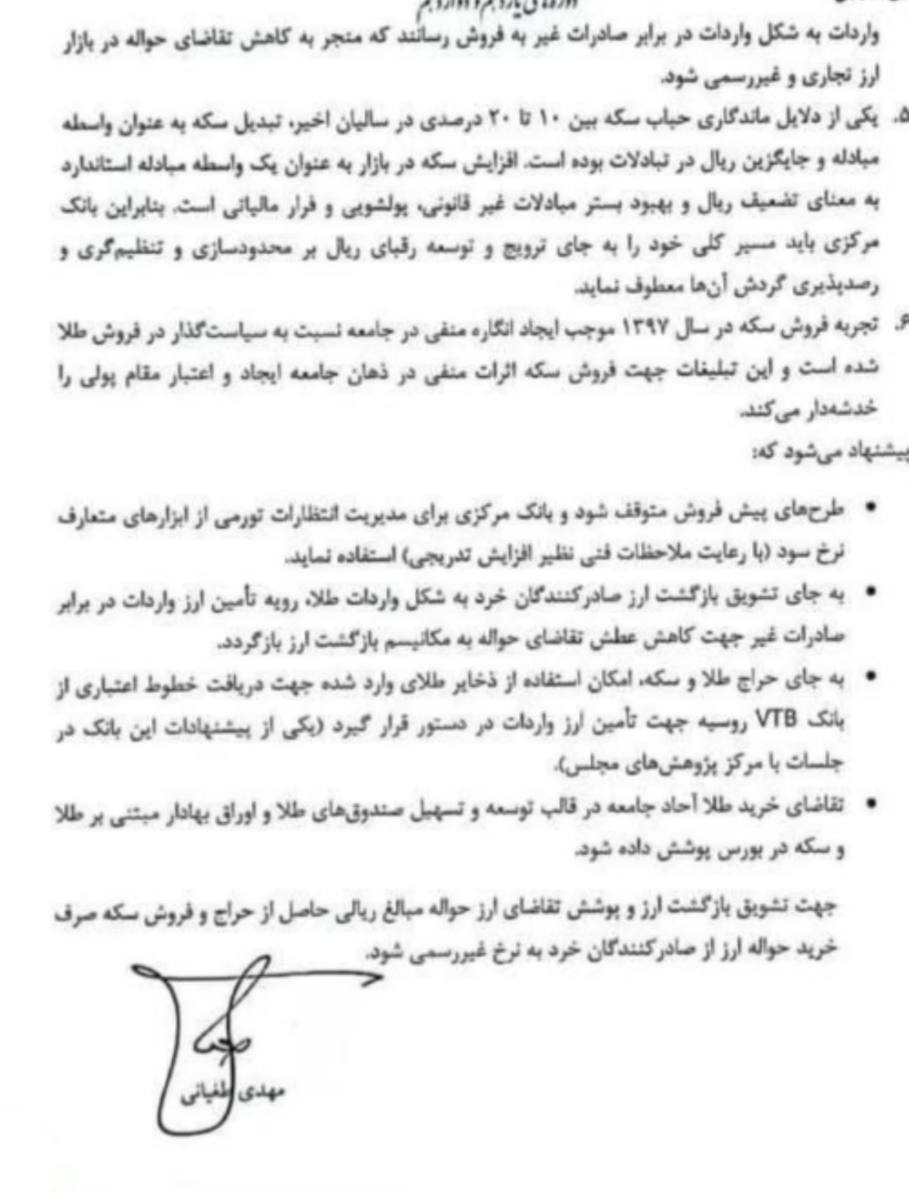 دوره‌های یازدهم و دوازدهم
واردات به شکل واردات در برابر صادرات غیر به فروش رسانند که منجر به کاهش تقاضای حواله در بازار
ارز تجاری و غیررسمی شود.
۵. یکی از دلایل ماندگاری حباب سکه بین ۱۰ تا ۲۰ درصدی در سالیان اخیر، تبدیل سکه به عنوان واسطه
مبادله و جایگزین ریال در تبادلات بوده است. افزایش سکه در بازار به عنوان یک واسطه مبادله استاندارد
به معنای تضعیف ریال و بهبود بستر مبادلات غیر قانونی، پولشویی و فرار مالیاتی است. بنابراین بانک
مرکزی باید مسیر کلی خود را به جای ترویج و توسعه رقبای ریال بر محدودسازی و تنظیم‌گری و
رصدپذیری گردش آن‌ها معطوف نماید.
۶. تجربه فروش سکه در سال ۱۳۹۷ موجب ایجاد انگاره منفی در جامعه نسبت به سیاست‌گذار در فروش طلا
شده است و این تبلیغات جهت فروش سکه اثرات منفی در ذهان جامعه ایجاد و اعتبار مقام پولی را
خدشه‌دار می‌کند.
پیشنهاد می‌شود که:
• طرح‌های پیش فروش متوقف شود و بانک مرکزی برای مدیریت انتظارات تورمی از ابزارهای متعارف
نرخ سود (با رعایت ملاحظات فنی نظیر افزایش تدریجی) استفاده نماید.
• به جای تشویق بازگشت ارز صادرکنندگان خرد به شکل واردات طلا، رویه تأمین ارز واردات در برابر
صادرات غیر جهت کاهش عطش تقاضای حواله به مکانیسم بازگشت ارز بازگردد.
• به جای حراج طلا و سکه، امکان استفاده از ذخایر طلای وارد شده جهت دریافت خطوط اعتباری از
بانک VTB روسیه جهت تأمین ارز واردات در دستور قرار گیرد (یکی از پیشنهادات این بانک در
جلسات با مرکز پژوهش‌های مجلس).
• تقاضای خرید طلا آحاد جامعه در قالب توسعه و تسهیل صندوق‌های طلا و اوراق بهادار مبتنی بر طلا
و سکه در بورس پوشش داده شود.
جهت تشویق بازگشت ارز و پوشش تقاضای ارز حواله مبالغ ریالی حاصل از حراج و فروش سکه صرف
خرید حواله ارز از صادرکنندگان خرد به نرخ غیررسمی شود.
مهدی طغیانی